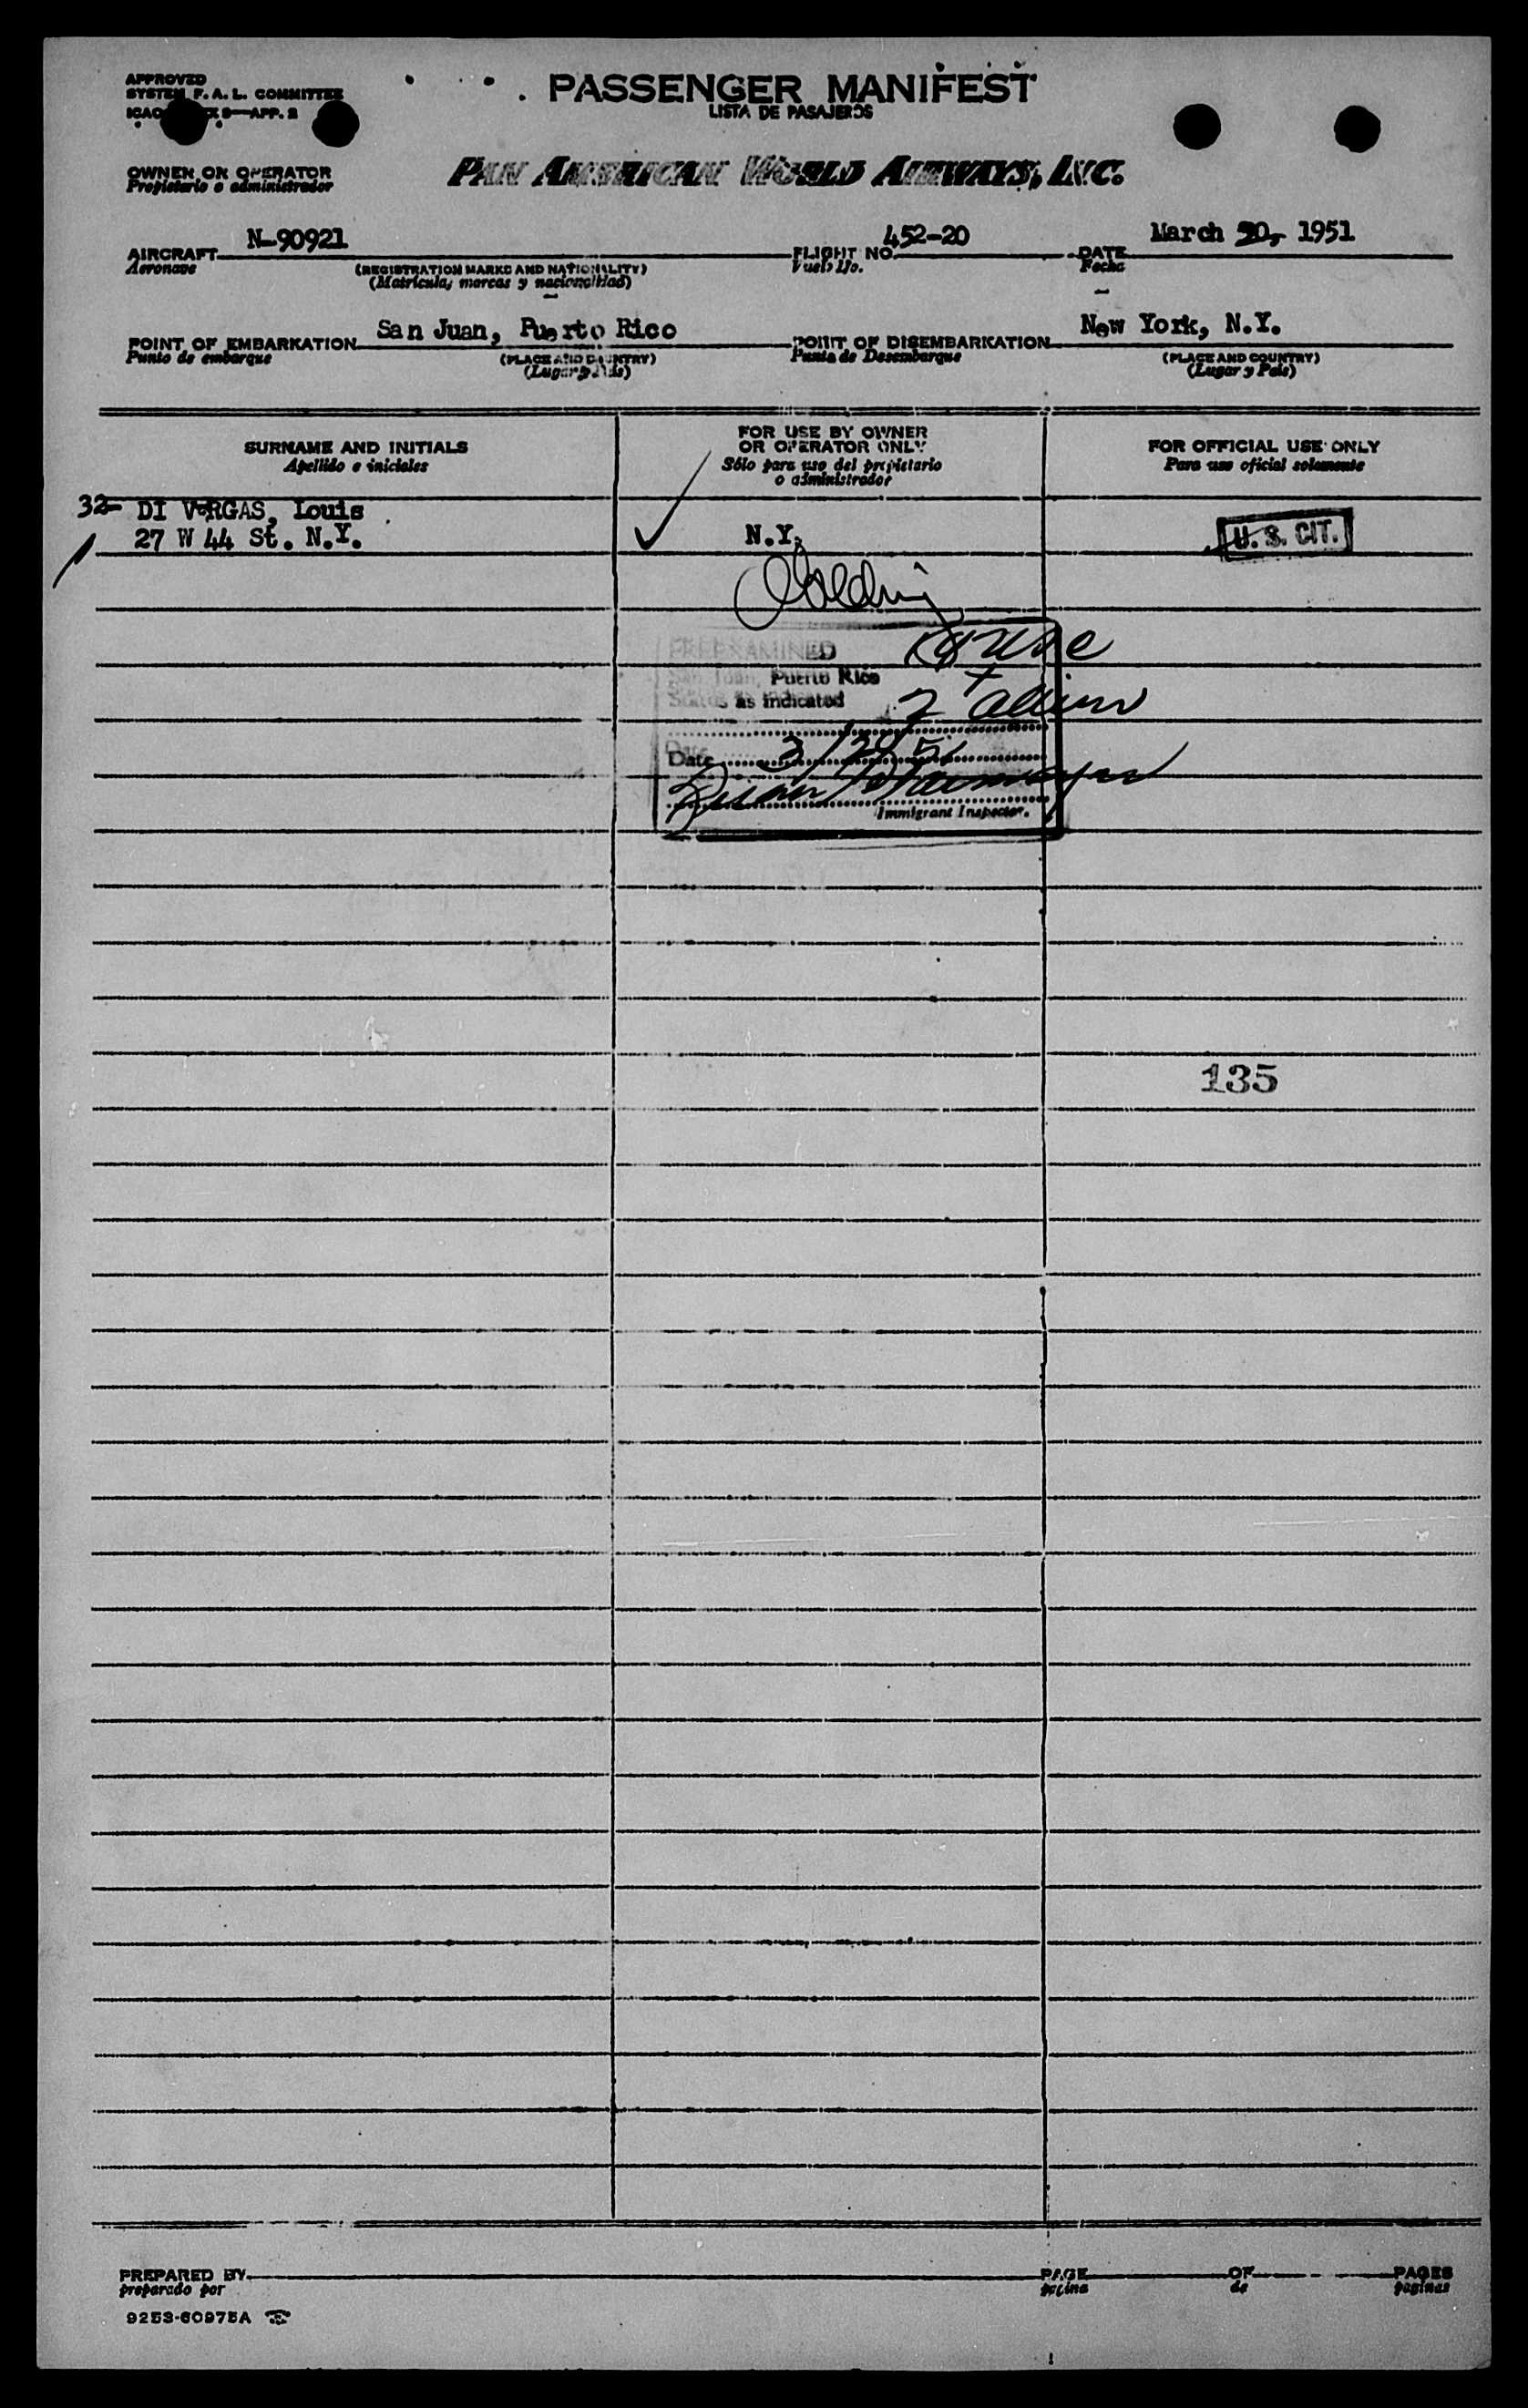 APPROVED
SYSTEM F. A. L. COMMITTEE
APP. 2
PASSENGER MANIFEST
LISTA DE PASAJEROS
OWNER OR OPERATOR
Propietario o administrador
PAN AMERICAN WORLD AIRWAYS, INC.
AIRCRAFT N-90921 FLIGHT NO. 452-20 DATE March 20, 1951
Aeronave (REGISTRATION MARKS AND NATIONALITY) Vuelo No. Fecha
(Matrícula, marcas y nacionalidad)
POINT OF EMBARKATION San Juan, Puerto Rico POINT OF DISEMBARKATION New York, N.Y.
Punto de embarque (PLACE AND COUNTRY) Punta de Desembarque (PLACE AND COUNTRY)
(Lugar y País) (Lugar y País)
SURNAME AND INITIALS
Apellido e iniciales
FOR USE BY OWNER
OR OPERATOR ONLY
Sólo para uso del propietario
o administrador
FOR OFFICIAL USE ONLY
Para uso oficial solamente
32- DI VERGAS, Louis
27 W 44 St. N.Y. N.Y. U. S. CIT.
PREEXAMINED
San Juan, Puerto Rico
Status as indicated 2
Date 3/20/51
Immigrant Inspector.
135
PREPARED BY PAGE OF PAGES
preparado por página de páginas
9253-60975A